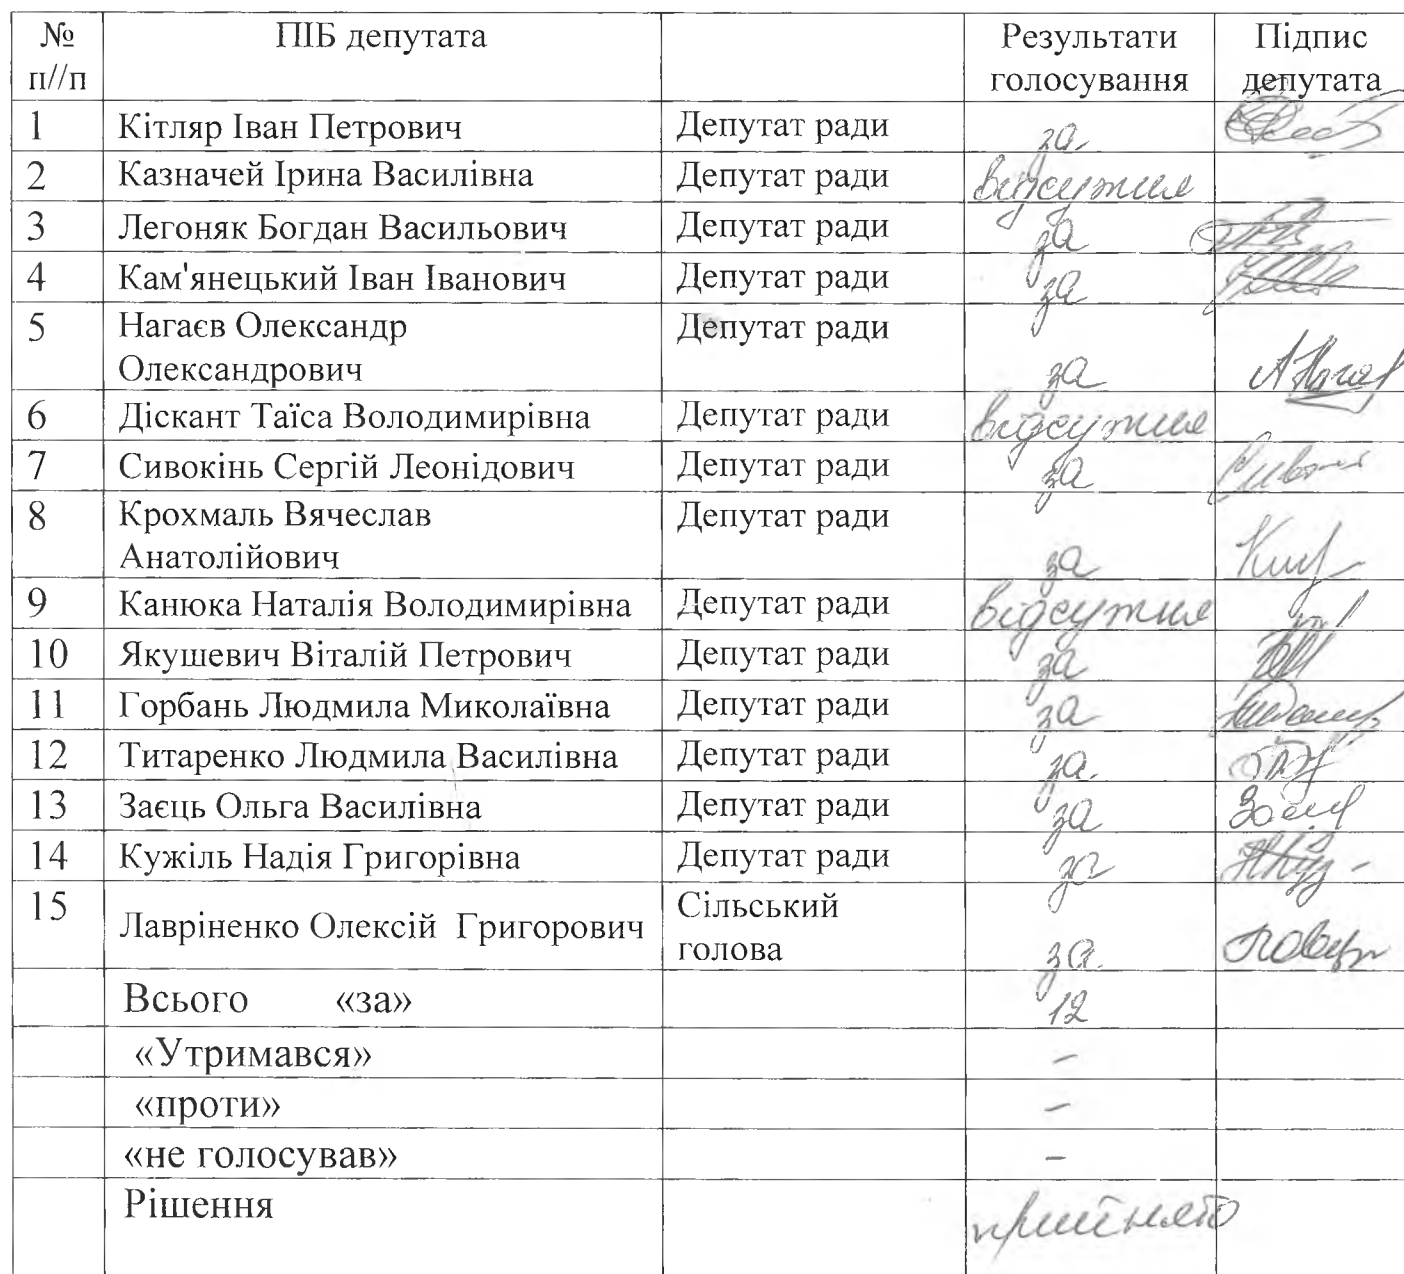 № ПІБ депутата Результати Підпис
п//п голосування депутата
1 Кітляр Іван Петрович Депутат ради за.
2 Казначей Ірина Василівна Депутат ради відсутня
3 Легоняк Богдан Васильович Депутат ради за
4 Кам'янецький Іван Іванович Депутат ради за
5 Нагаєв Олександр Депутат ради
Олександрович за
6 Діскант Таїса Володимирівна Депутат ради відсутня
7 Сивокінь Сергій Леонідович Депутат ради за
8 Крохмаль Вячеслав Депутат ради
Анатолійович за
9 Канюка Наталія Володимирівна Депутат ради відсутня
10 Якушевич Віталій Петрович Депутат ради за
11 Горбань Людмила Миколаївна Депутат ради за
12 Титаренко Людмила Василівна Депутат ради за.
13 Заєць Ольга Василівна Депутат ради за
14 Кужіль Надія Григорівна Депутат ради за
15 Лавріненко Олексій Григорович Сільський
голова за.
Всього «за» 12
«Утримався» –
«проти» –
«не голосував» –
Рішення прийнято